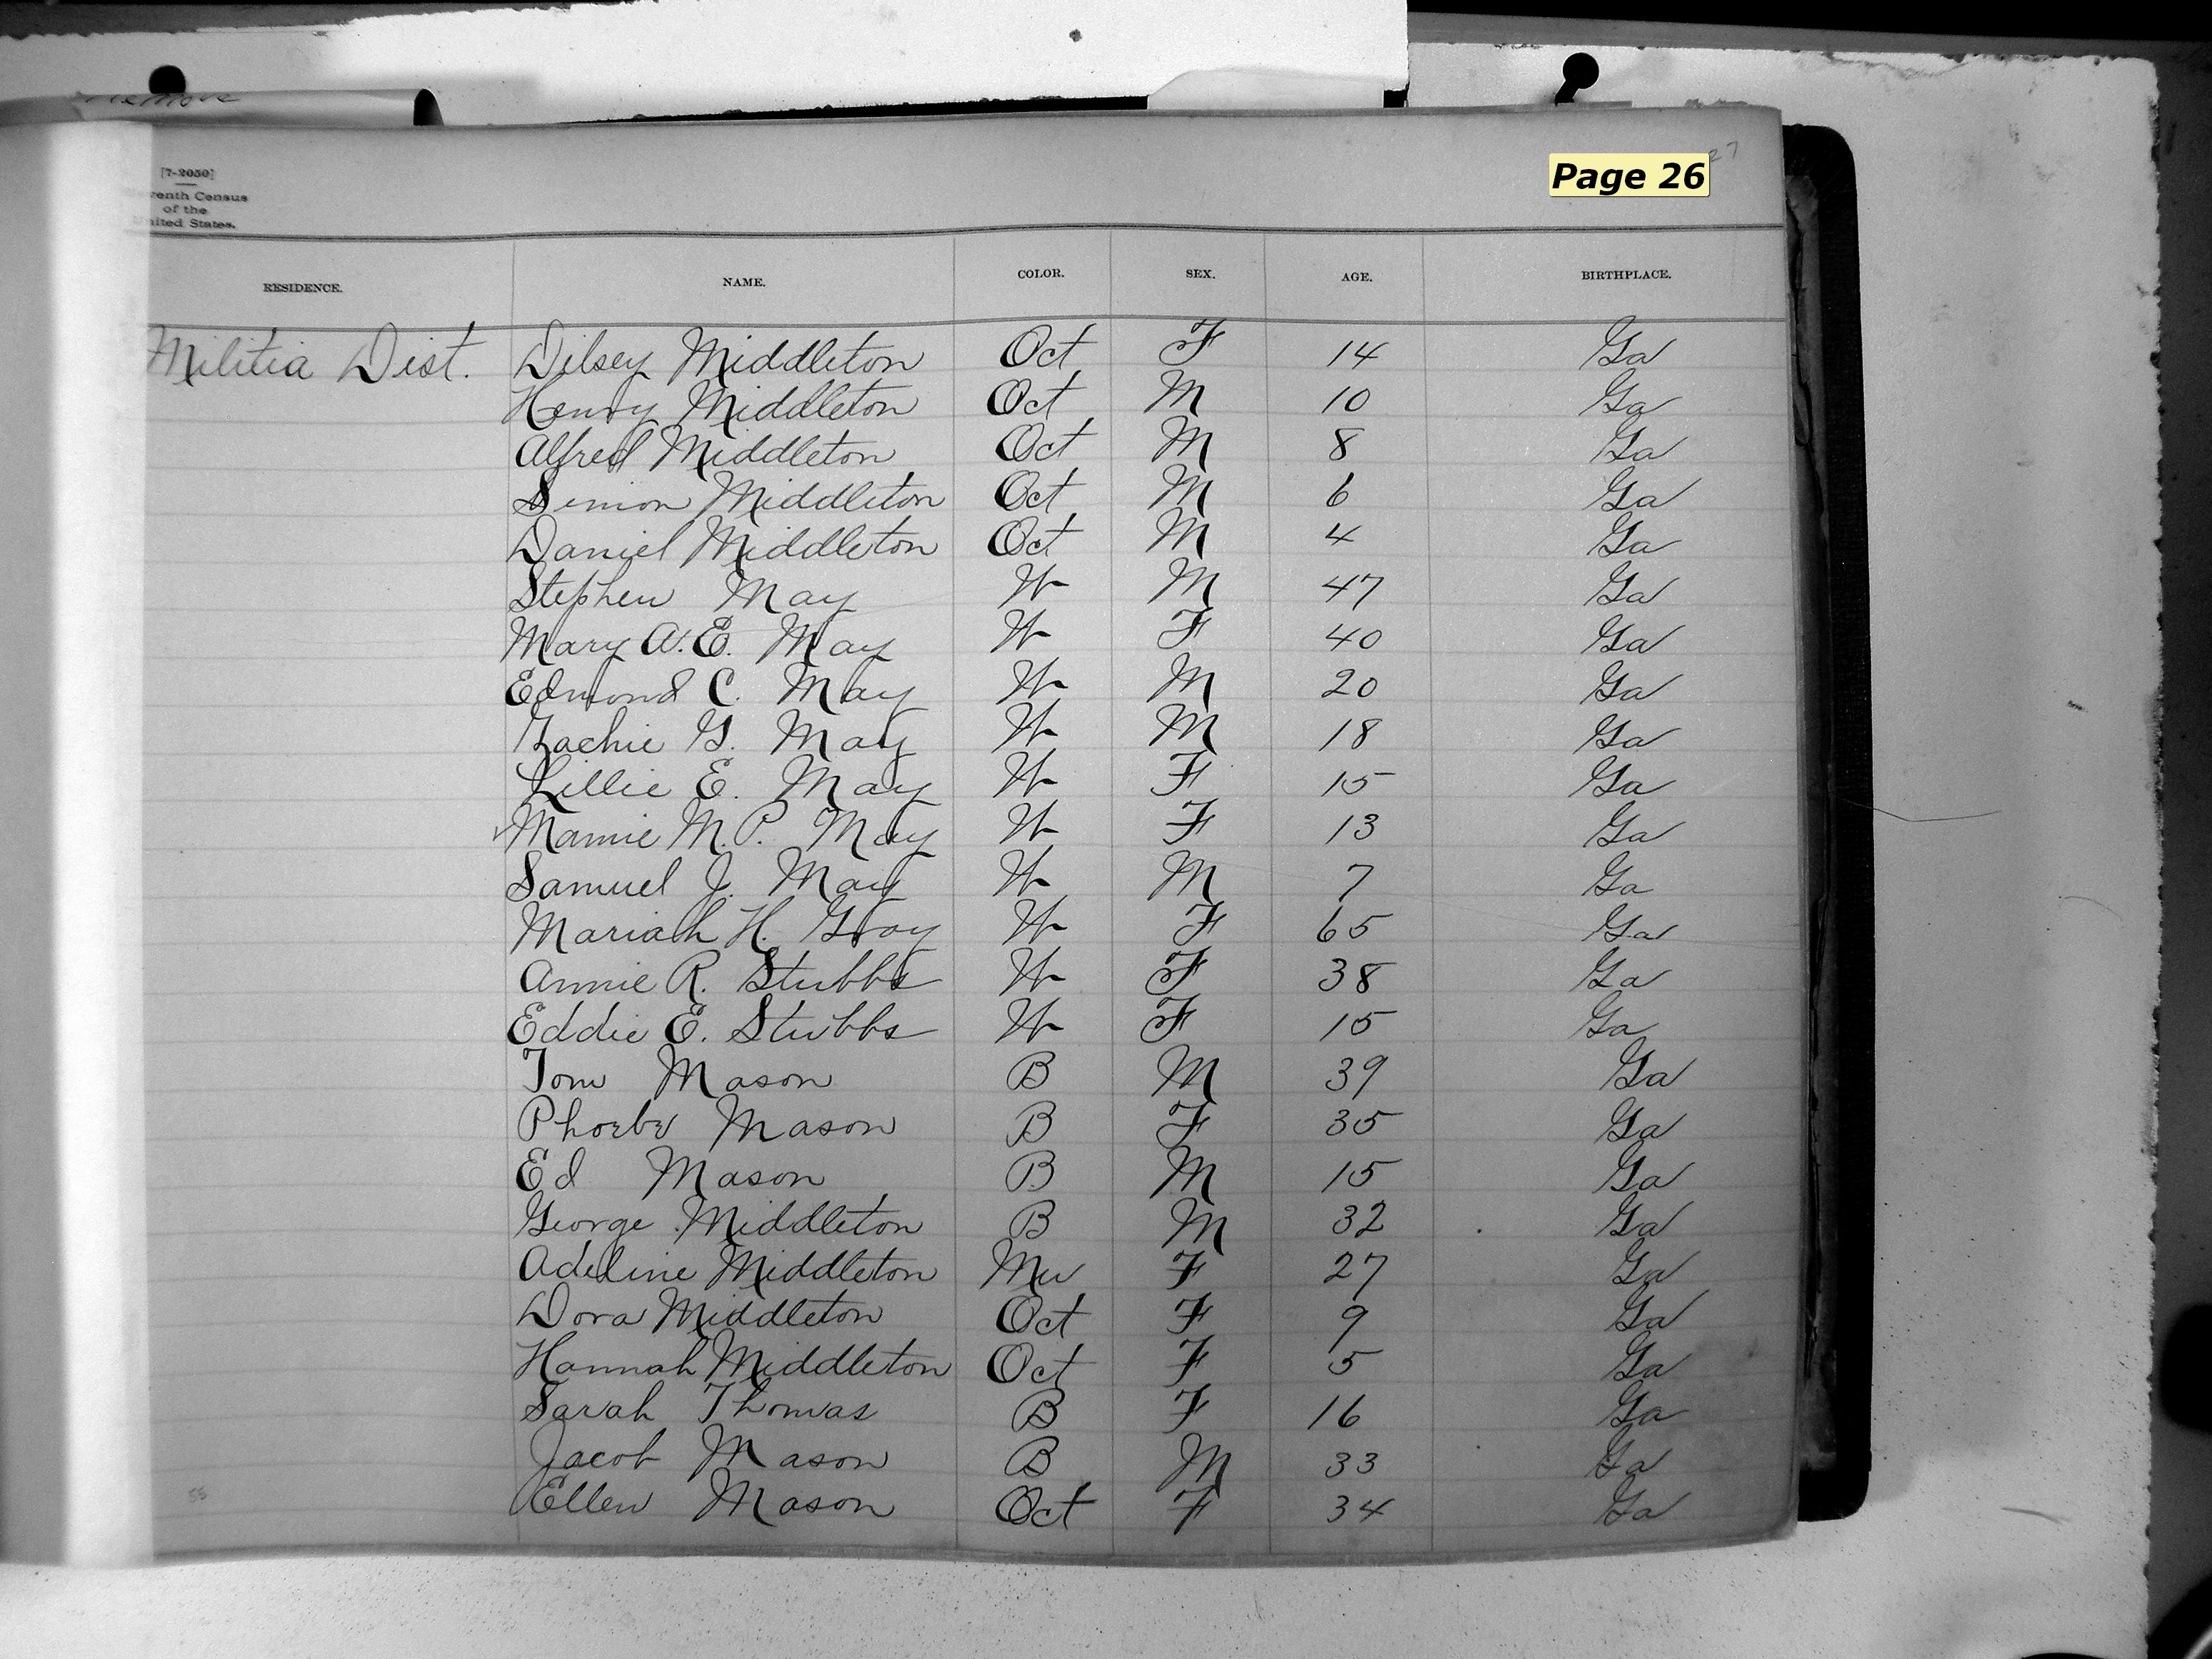 Remove
[7-2050]
venth Census
of the
nited States.
Page 26
27
RESIDENCE. NAME. COLOR. SEX. AGE. BIRTHPLACE.
Militia Dist. Dilsey Middleton Oct F 14 Ga
Henry Middleton Oct M 10 Ga
Alfred Middleton Oct M 8 Ga
Simon Middleton Oct M 6 Ga
Daniel Middleton Oct M 4 Ga
Stephen May W M 47 Ga
Mary A. E. May W F 40 Ga
Edmond C. May W M 20 Ga
Zachie G. May W M 18 Ga
Lillie E. May W F 15 Ga
Mamie M. P. May W F 13 Ga
Samuel J. May W M 7 Ga
Mariah H. Gray W F 65 Ga
Annie R. Stubbs W F 38 Ga
Eddie E. Stubbs W F 15 Ga
Tom Mason B M 39 Ga
Phoebe Mason B F 35 Ga
Ed Mason B M 15 Ga
George Middleton B M 32 Ga
Adeline Middleton Mu F 27 Ga
Dora Middleton Oct F 9 Ga
Hannah Middleton Oct F 5 Ga
Sarah Thomas B F 16 Ga
Jacob Mason B M 33 Ga
Ellen Mason Oct F 34 Ga